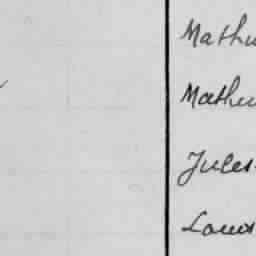 Mathu
Mathu
Jules
Louis